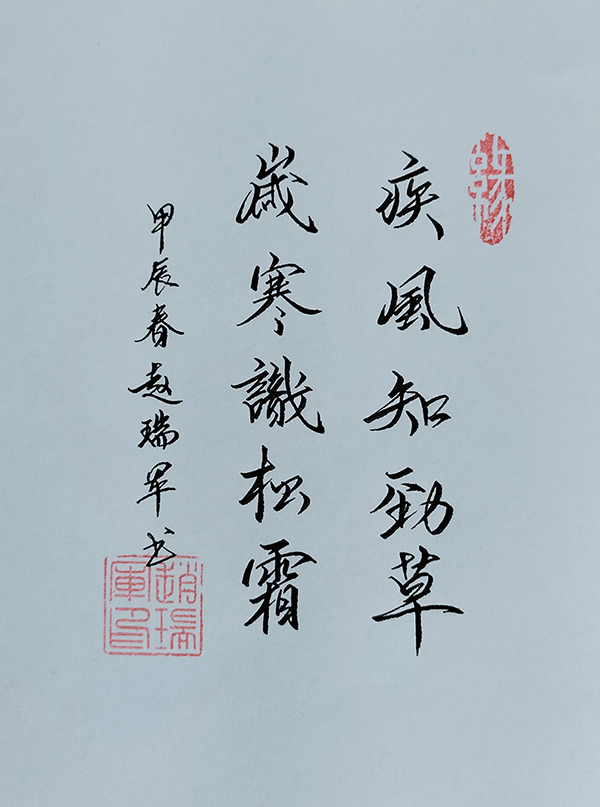 疾風知勁草
歲寒識松霜
甲辰春赵瑞军书
趙瑞軍印